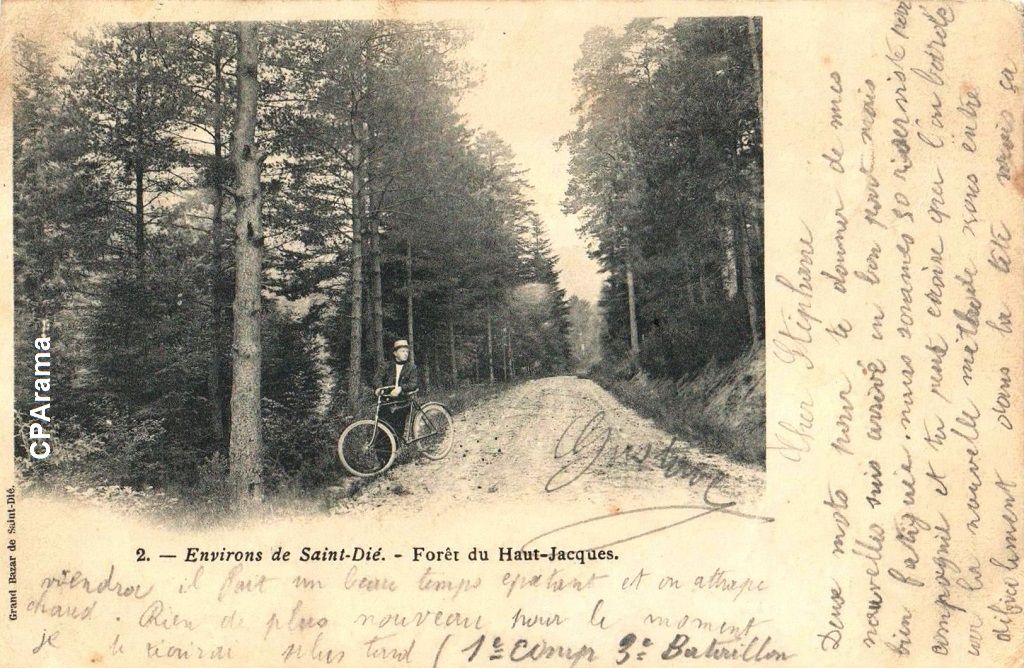 Cher Stéphane
Deux mots pour te donner de mes
nouvelles suis arrivé en bon port mais
bien fatigué. nous sommes 30 réserviste par
compagnie et tu peut croire que l'on barde
car la nouvelle méthode pour entre
difficilement dans la tête mais ça
viendra il fait un beau temps epatant et on attrape
chaud. Rien de plus nouveau pour le moment
je t'écrirai plus tard (1re comp 3e Bataillon
Gustave
2. — Environs de Saint-Dié. - Forêt du Haut-Jacques.
Grand Bazar de Saint-Dié.
CPArama